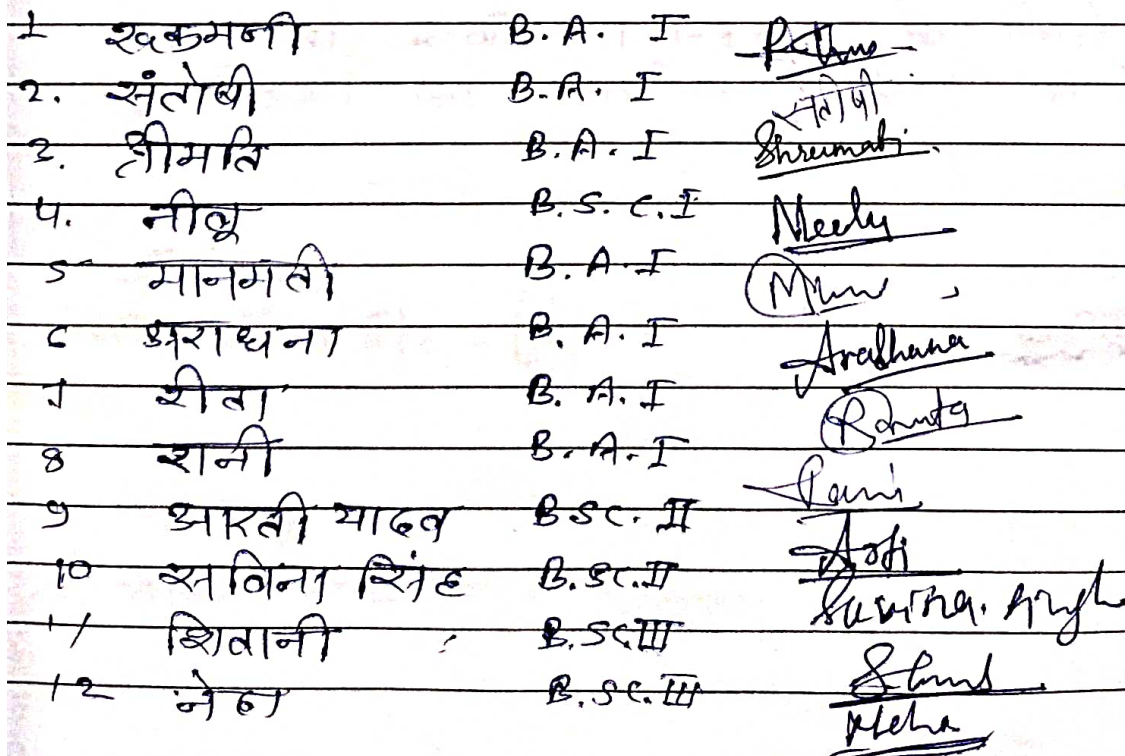 1 रूकमणी B. A. I
2. संतोषी B.A. I संतोषी
3. श्रीमति B.A. I Shreemati
4. नीलू B.S.C.I Neelu
5 मानमती B.A.I
6 अराधना B.A.I Aradhana
7 रीता B.A.I
8 रानी B.A.I Rani
9 आरती यादव B.SC. II Arti
10 सविना सिंह B.SC.II Savina. Singh
11 शिवानी B.SC.III
12 नेहा B.SC.III Neha